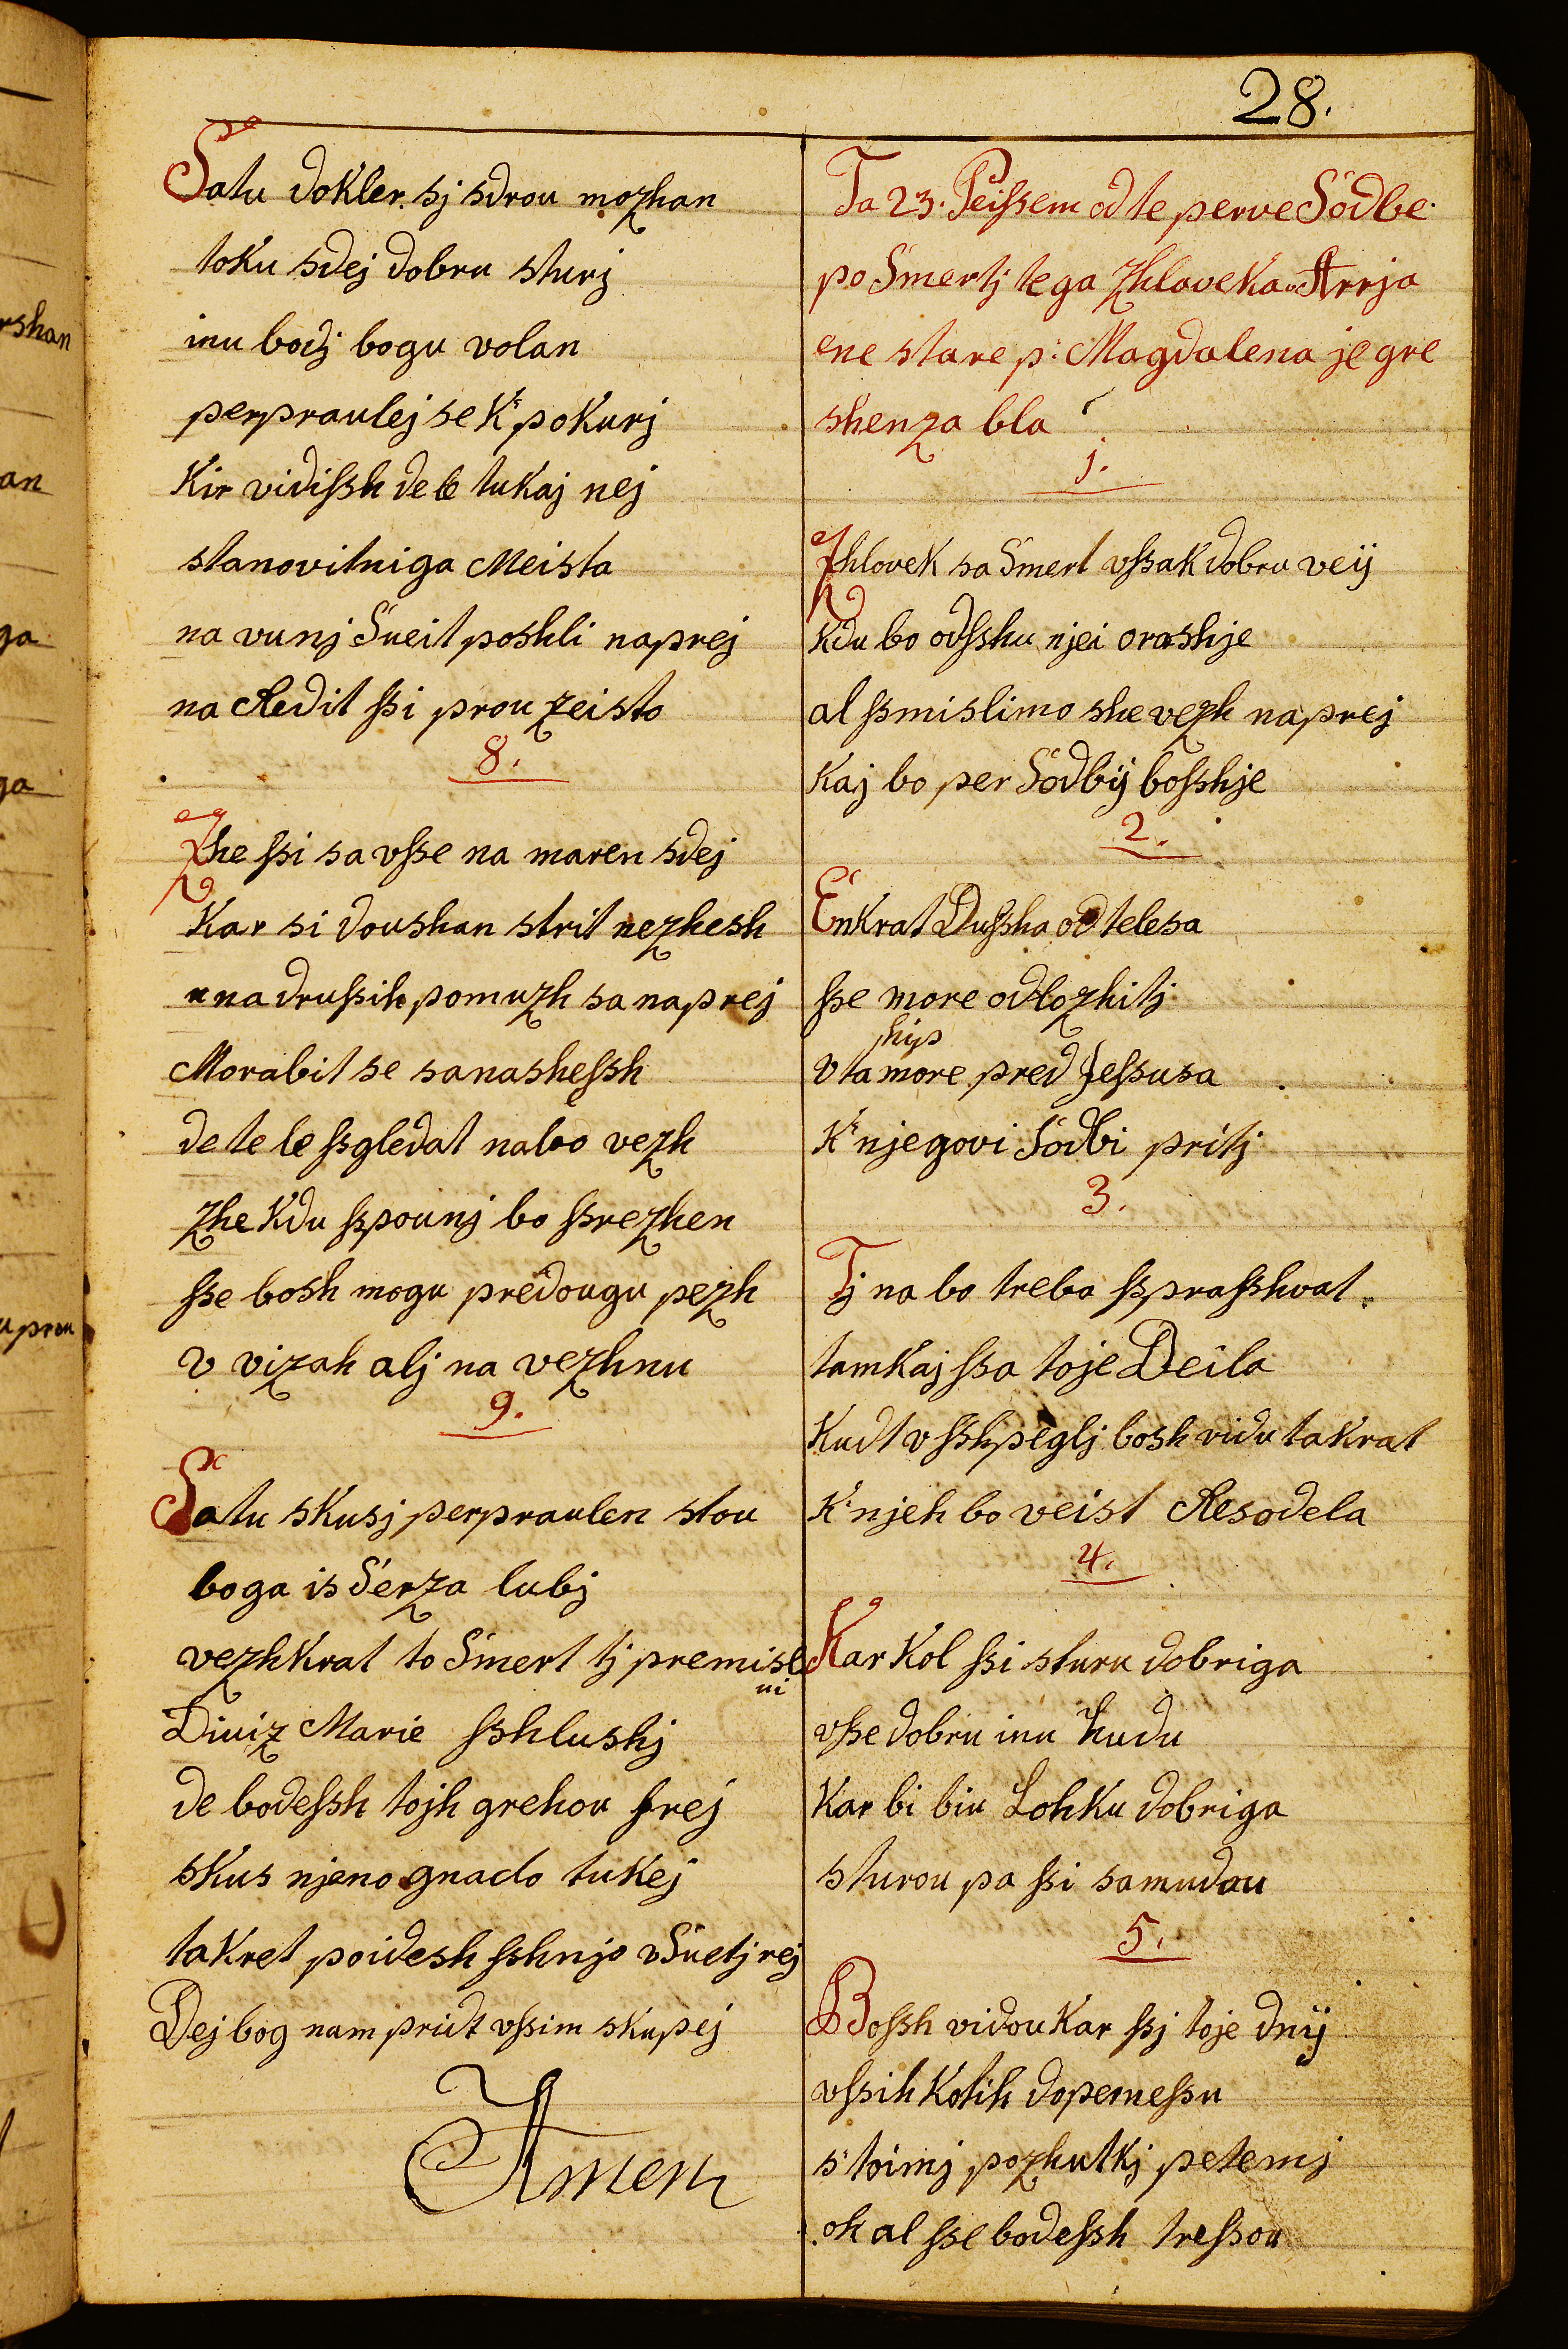 28.
Satu dokler sj sdrou mozhan
toku sdej dobru sturj
inu bodj bogu volan
perpraulej se K' poKurj
Kir vidiſsh de le tuKaj nej
stanovitniga Meista
na vunj Sueit poshli naprej
na Redit ſsi prou zeisto
8.
Zhe ſsi sa vſse na maren sdej
Kar si doushan strit nezhesh
na druſsih pomuzh sa naprej
Morabit se sanasheſsh
de te le ſsgledat nabo vezh
zhe Kdu ſspounj bo ſsrezhen
ſse bosh mogu predougu pezh
v vizah alj na vezhnu
9.
Satu sKusj perpraulen stou
boga is Serza lubj
vezhKrat to Smert tj premisl
ni
Diviz Marie ſshlushj
de bodeſsh tojh grehou frej
sKus njeno gnado tuKej
taKret poidesh ſshnjo vSuetj rej
Dej bog nam priidt vſsim sKupej
Amen
Ta 23. Peiſsem od te perve Sodbe
po Smertj tega zhloveKa Arrja
ene stare p: Magdalena je gre
shenza bla
1.
ZhloveK sa Smert vſsaK dobru veij
Kdu bo odſshu njei orashje
al ſsmislimo she vezh naprej
Kaj bo per Sodbij boſshje
2.
EnKrat Duſsha od telesa
ſse more odlozhitj
vta more pred Jeſsusa
K'njegovi Sodbi pritj
3.
Tj na bo treba ſspraſshvat
tamKaj ſsa toje Deila
Kudt v ſshpeglj bosh vidu taKrat
K'njeh bo veist Resodela
4.
KarKol ſsi sturu dobriga
vſse dobru inu hudu
Kar bi biu LohKu dobriga
sturou pa ſsi samudau
5.
Boſsh vidou Kar ſsj toje dnij
vſsih Kotih doperneſsu
s'toimj pozhutKj petemj
oh al ſse bodeſsh treſsou